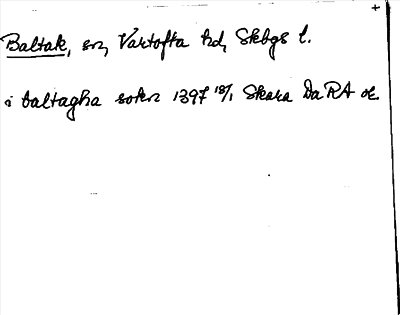 Baltak, sn, Vartofta hd, Skbgs l.
i baltagha sokn 1397 18/1 Skara DaRA or.